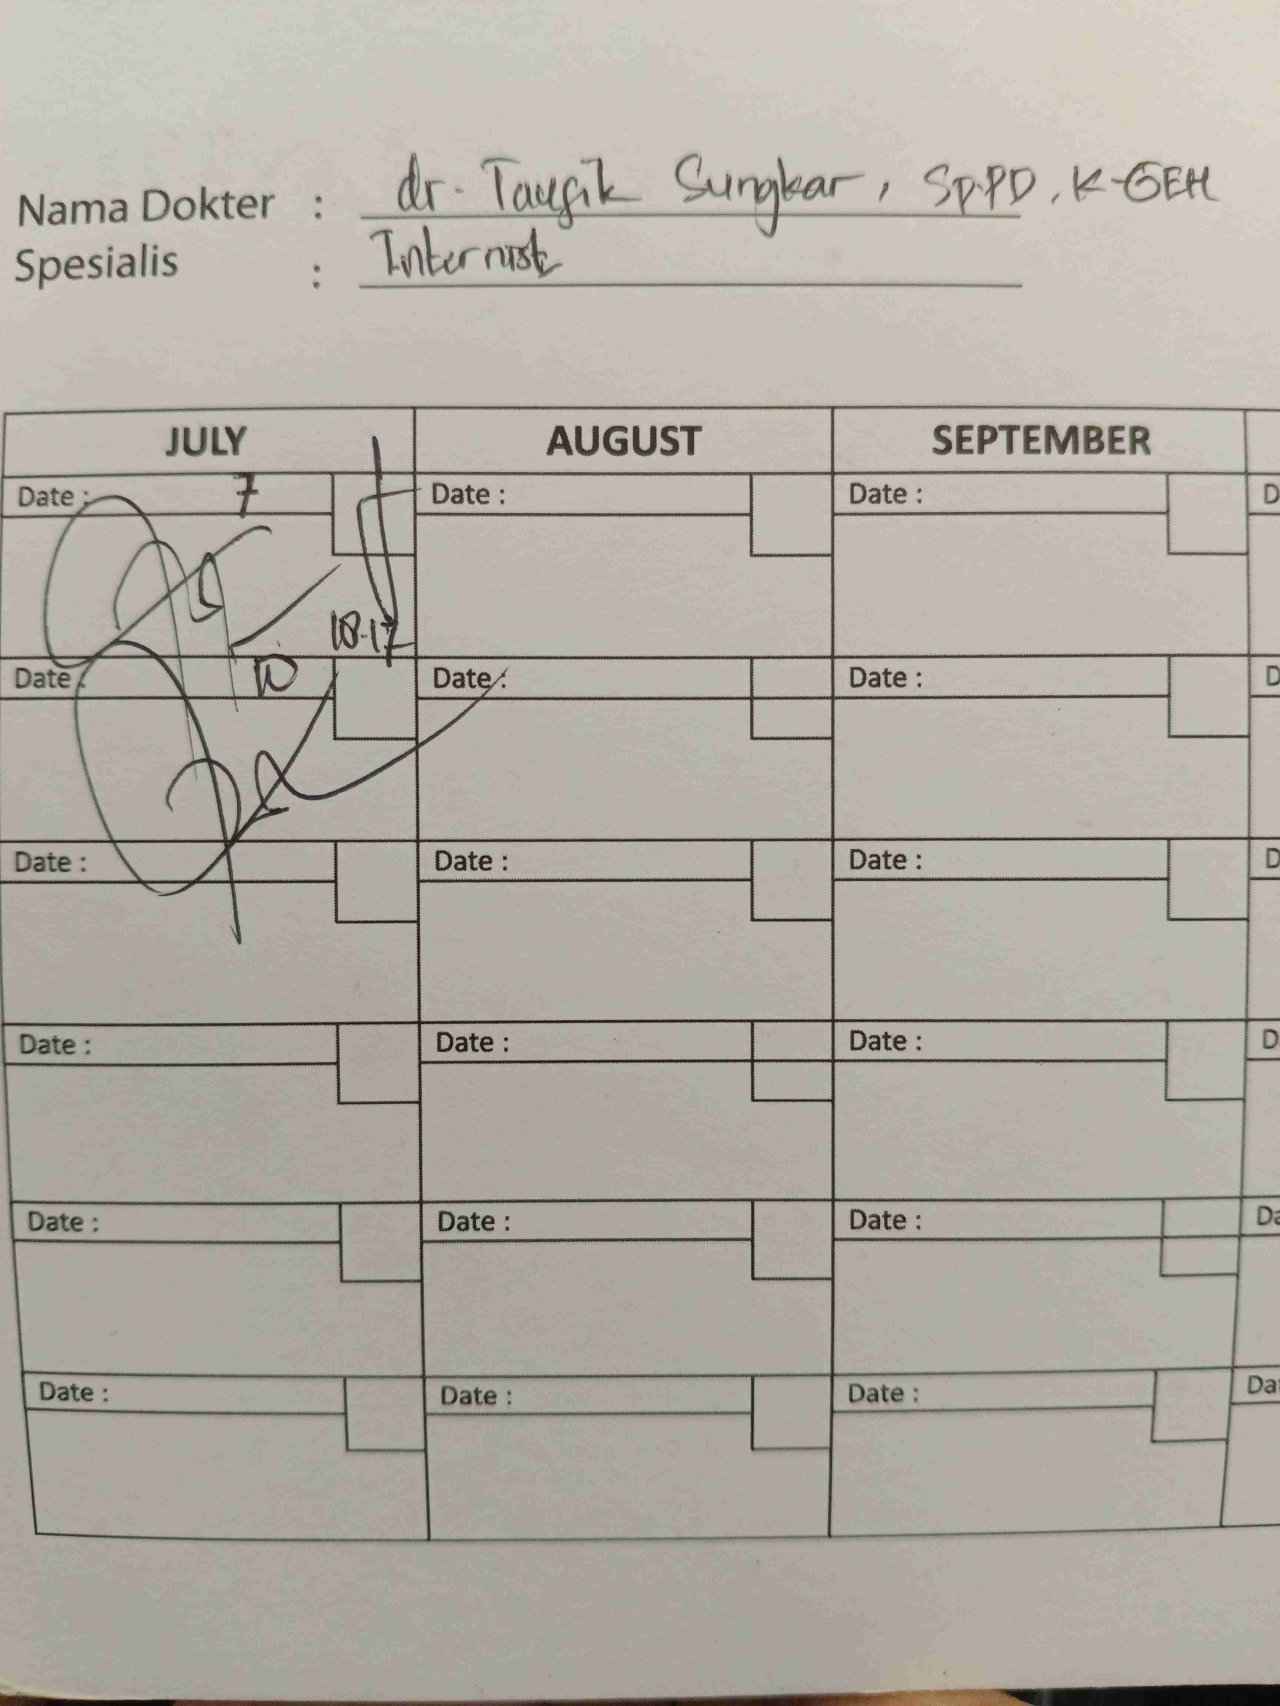 Nama Dokter : dr. Taufik Sungkar, Sp.PD, K-GEH
Spesialis : Internist
JULY AUGUST SEPTEMBER
Date : 7 Date : Date : D
18.17
Date : 10 Date : Date : D
Date : Date : Date : D
Date : Date : Date : D
Date : Date : Date : Da
Date : Date : Date : Dat